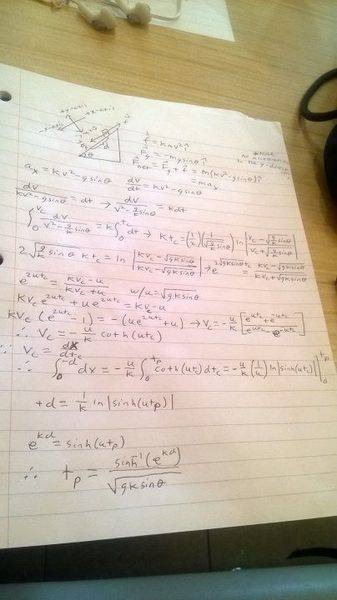 f = kmv² î
Fg = -mg sinθ î
Fnet = Fg + f = m(kv² - g sinθ) î
= max
no
acceleration
in the y-direction
aₓ = kv² - g sinθ    dv/dt = kv² - g sinθ
dv/(kv² - g sinθ) = dt → dv/(v² - (g/k) sinθ) = kdt
∫₀^{Vc} dv/(v² - (g/k) sinθ) = k∫₀^{tc} dt → k tc = (1/2)(1/√((g/k) sinθ)) ln |(Vc - √((g/k) sinθ))/(Vc + √((g/k) sinθ))|
2√((g/k) sinθ) k tc = ln |(kVc - √(gk sinθ))/(kVc + √(gk sinθ))| → e^{2√(gk sinθ) tc} = (kVc - √(gk sinθ))/(kVc + √(gk sinθ))
e^{2utc} = (kVc - u)/(kVc + u)    w/u = √(gk sinθ)
kVc e^{2utc} + ue^{2utc} = kVc - u
kVc (e^{2utc} - 1) = -(ue^{2utc} + u) → Vc = -u/k [(e^{utc} + e^{-utc})/(e^{utc} - e^{-utc})]
∴ Vc = -u/k coth(utc)
∵ Vc = dx/dtc
∴ ∫₀^{-d} dx = -u/k ∫₀^{tp} coth(utc) dtc = -u/k (1/u) ln|sinh(utc)| |₀^{tp}
+d = 1/k ln|sinh(utp)|
e^{kd} = sinh(utp)
∴ tp = sinh⁻¹(e^{kd})/√(gk sinθ)